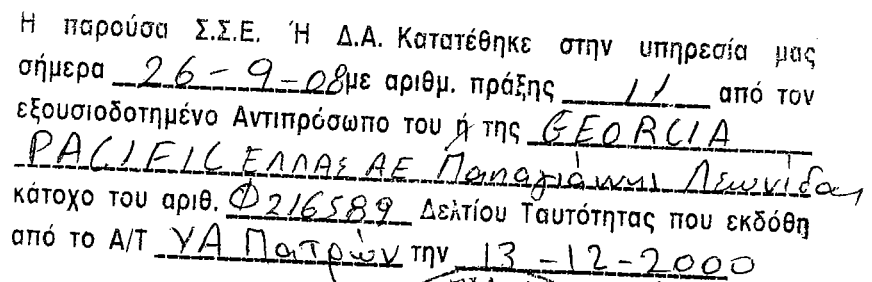 Η παρούσα Σ.Σ.Ε. Ή Δ.Α. Κατατέθηκε στην υπηρεσία μας
σήμερα 26-9-08 με αριθμ. πράξης 11 από τον
εξουσιοδοτημένο Αντιπρόσωπο του ή της GEORCIA
PACIFIC ΕΛΛΑΣ ΑΕ Παπαγιάννη Λεωνίδα
κάτοχο του αριθ. Φ216589 Δελτίου Ταυτότητας που εκδόθη
από το Α/Τ ΥΑ Πατρών την 13-12-2000